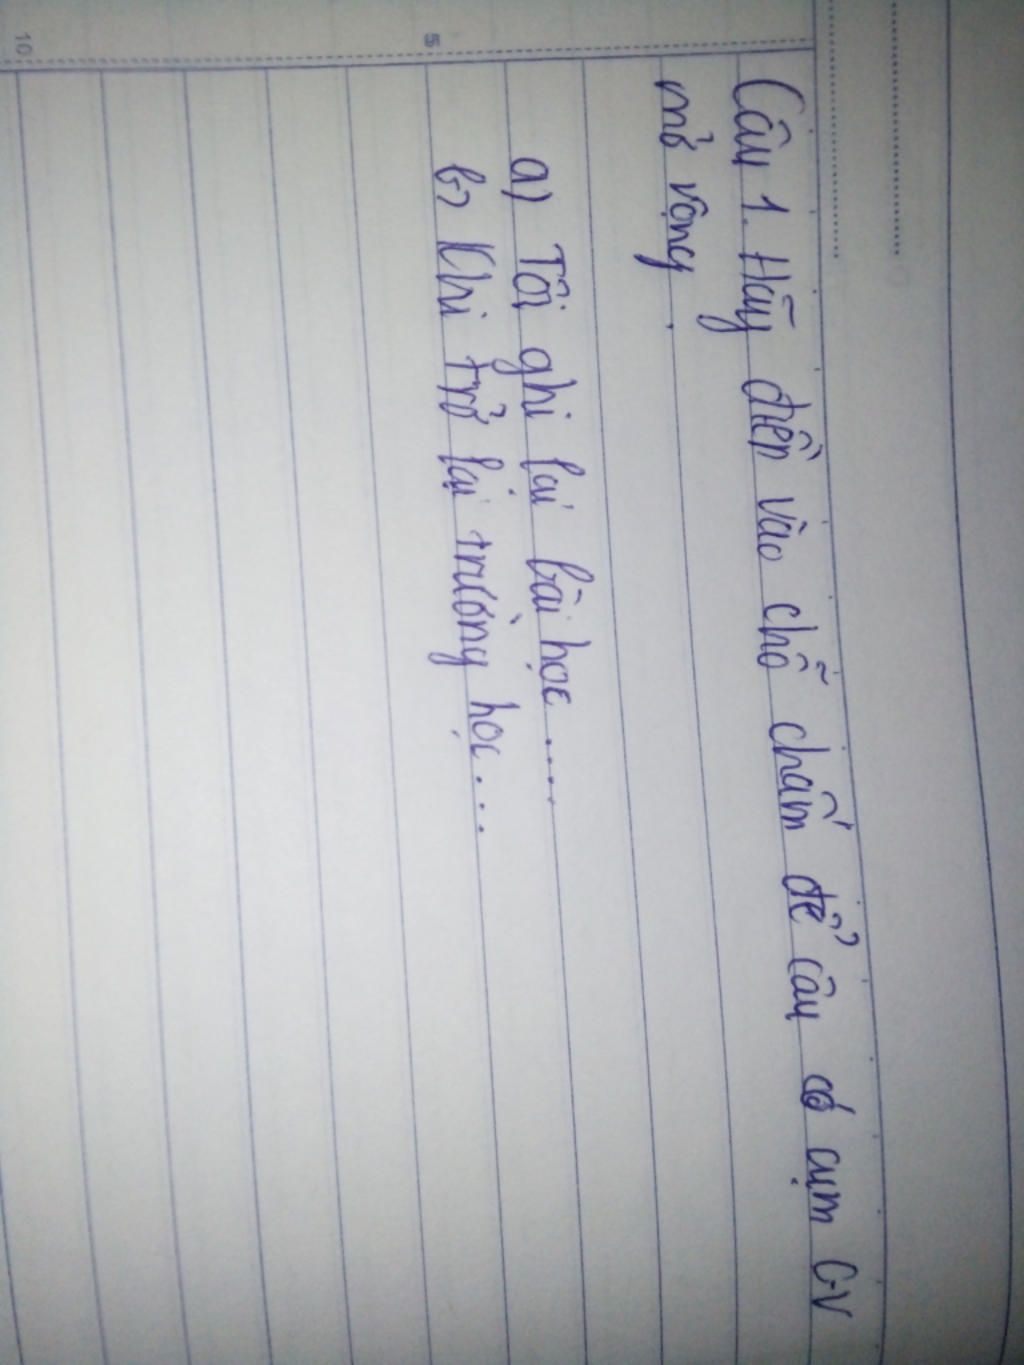 Câu 1. Hãy điền vào chỗ chấm để câu có cụm C-V
mở rộng.
a) Tôi ghi lại bài học ....
b) Khi trở lại trường học...
5
10